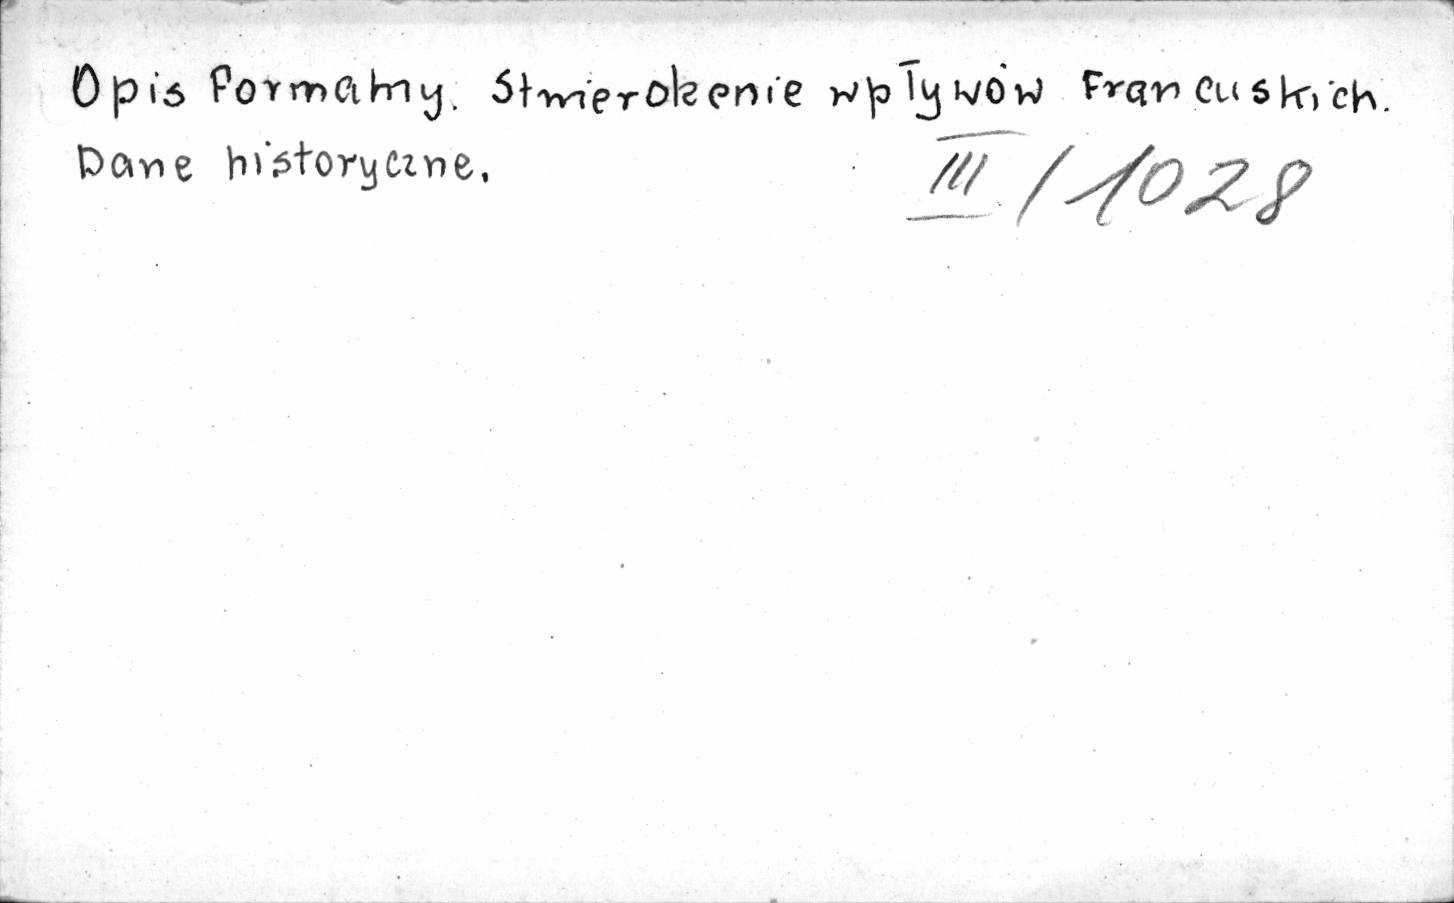 Opis formalny. Stwierdzenie wpływów francuskich.
Dane historyczne.
III/1028